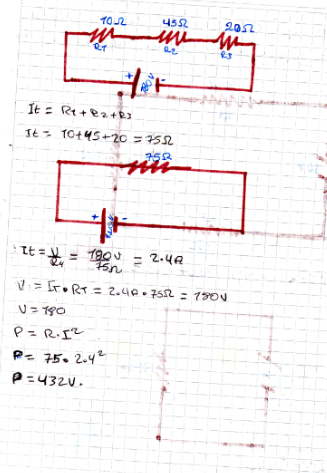 10Ω 45Ω 20Ω
R1 R2 R3
+ 180V -
It = R1+R2+R3
It = 10+45+20 = 75Ω
75Ω
+ -
It = V/Rt = 180V/75Ω = 2.4A
V = IT • RT = 2.4A • 75Ω = 180V
V = 180
P = R.I²
P = 75 • 2.4²
P = 432V.